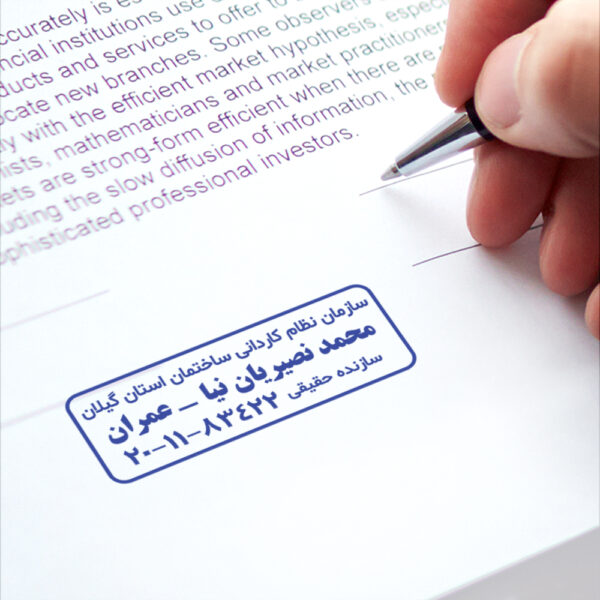 ccurately is es
ncial institutions use
ducts and services to offer to
ocate new branches. Some observers
ly with the efficient market hypothesis, especi
ists, mathematicians and market practitioners
ets are strong-form efficient when there are
uding the slow diffusion of information, the
ophisticated professional investors.
سازمان نظام کاردانی ساختمان استان گیلان
محمد نصیریان نیا – عمران
سازنده حقیقی ۸۳۴۲۲–۱۱–۲۰